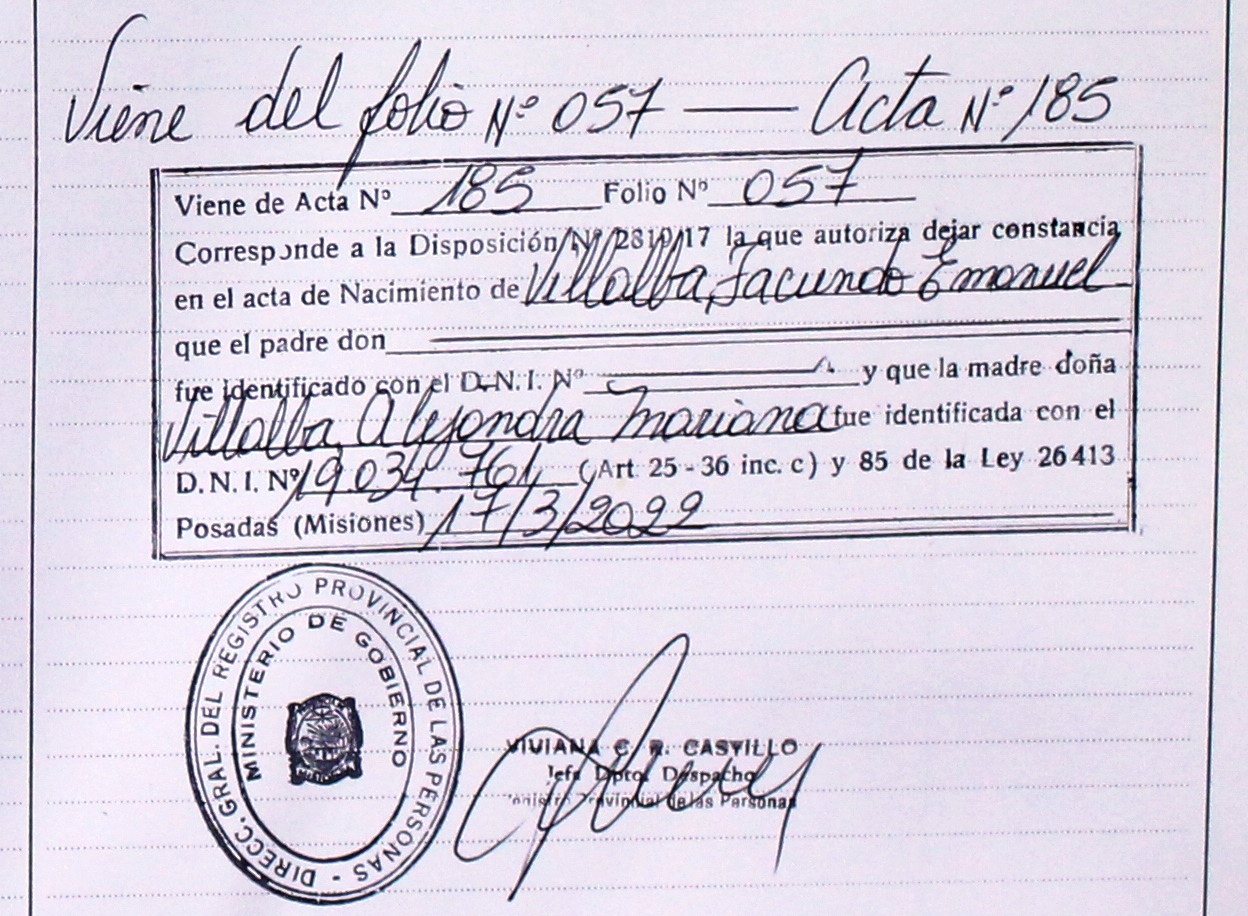 Viene del folio Nº 057 — Acta Nº 185
Viene de Acta Nº 185 Folio Nº 057
Corresponde a la Disposición Nº 2819/17 la que autoriza dejar constancia
en el acta de Nacimiento de Villalba, Facundo Emanuel
que el padre don
fue identificado con el D.N.I. Nº y que la madre doña
Villalba, Alejandra Mariana fue identificada con el
D.N.I. Nº 19.034.761 (Art. 25 - 36 inc. c) y 85 de la Ley 26413
Posadas (Misiones) 17/3/2022
DIRECC. GRAL. DEL REGISTRO PROVINCIAL DE LAS PERSONAS -
MINISTERIO DE GOBIERNO
VIVIANA C. R. CASTILLO
Jefa Dpto. Despacho
Provincial de las Personas